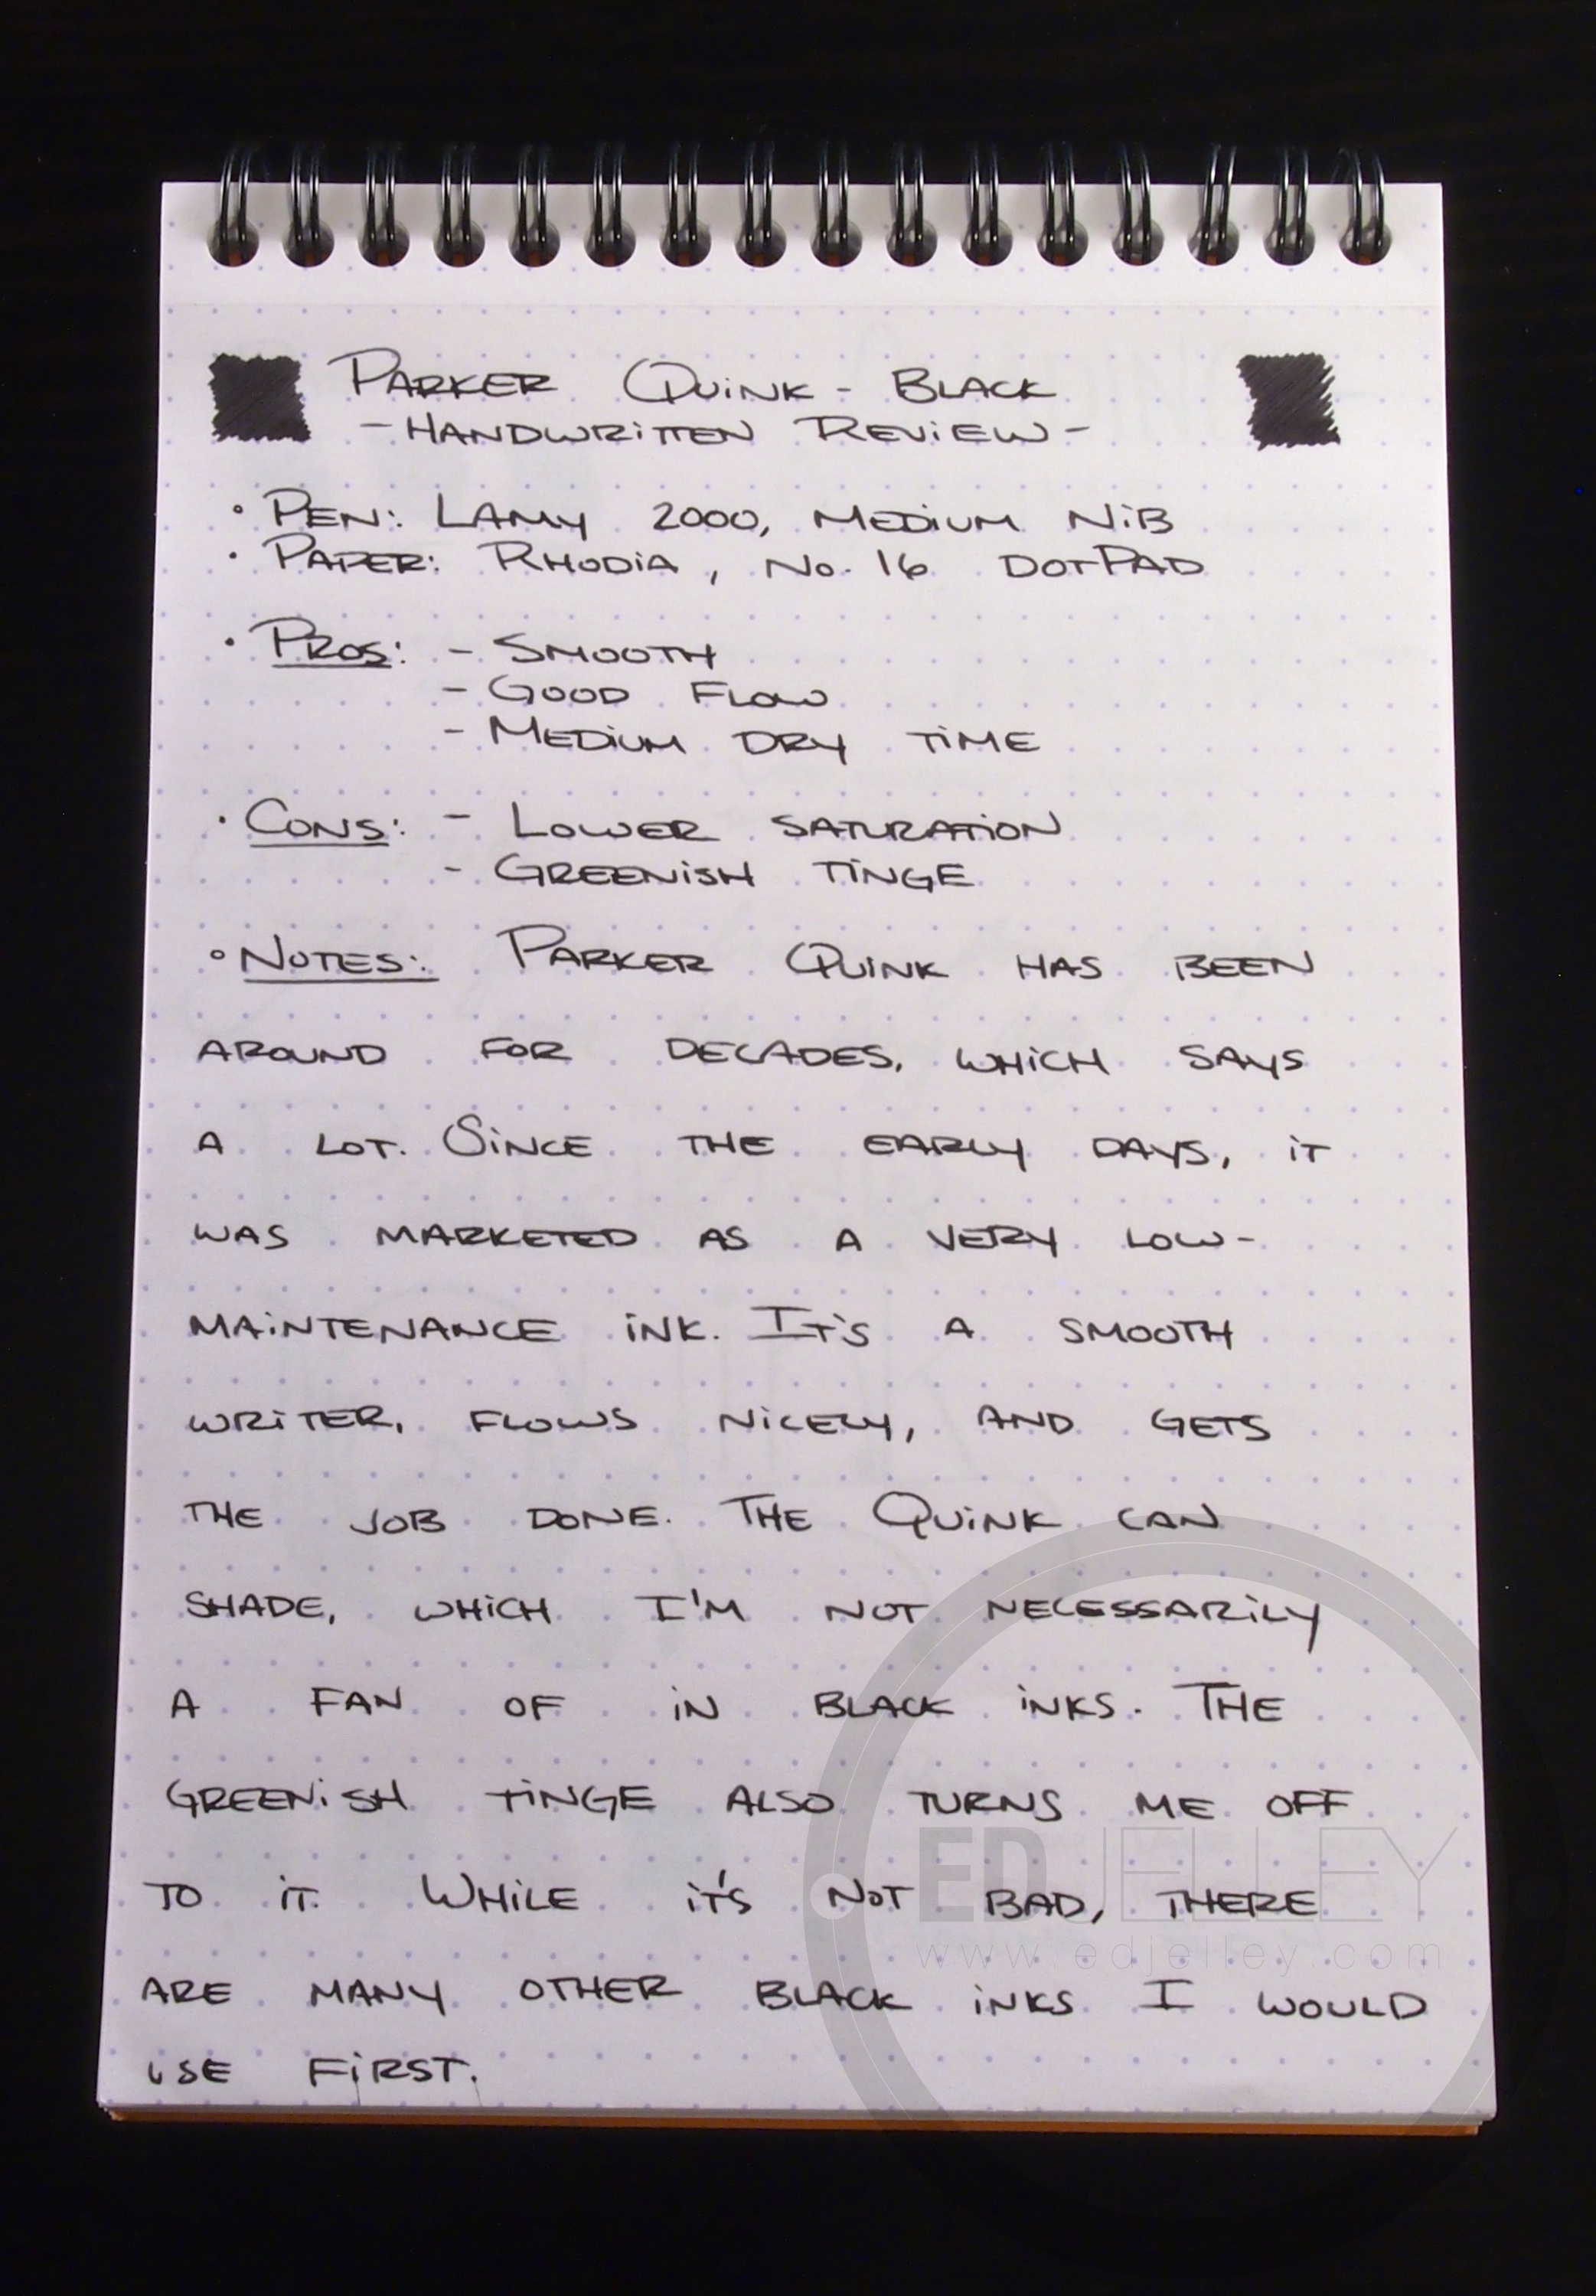 PARKER QUINK - BLACK
- HANDWRITTEN REVIEW -
• PEN: LAMY 2000, MEDIUM NIB
• PAPER: RHODIA, No. 16 DOTPAD
• PROS: - SMOOTH
- GOOD FLOW
- MEDIUM DRY TIME
• CONS: - LOWER SATURATION
- GREENISH TINGE
• NOTES: PARKER QUINK HAS BEEN
AROUND FOR DECADES, WHICH SAYS
A LOT. SINCE THE EARLY DAYS, IT
WAS MARKETED AS A VERY LOW-
MAINTENANCE INK. IT'S A SMOOTH
WRITER, FLOWS NICELY, AND GETS
THE JOB DONE. THE QUINK CAN
SHADE, WHICH I'M NOT NECESSARILY
A FAN OF IN BLACK INKS. THE
GREENISH TINGE ALSO TURNS ME OFF
TO IT. WHILE IT'S NOT BAD, THERE
ARE MANY OTHER BLACK INKS I WOULD
USE FIRST.
ED JELLEY
www.edjelley.com